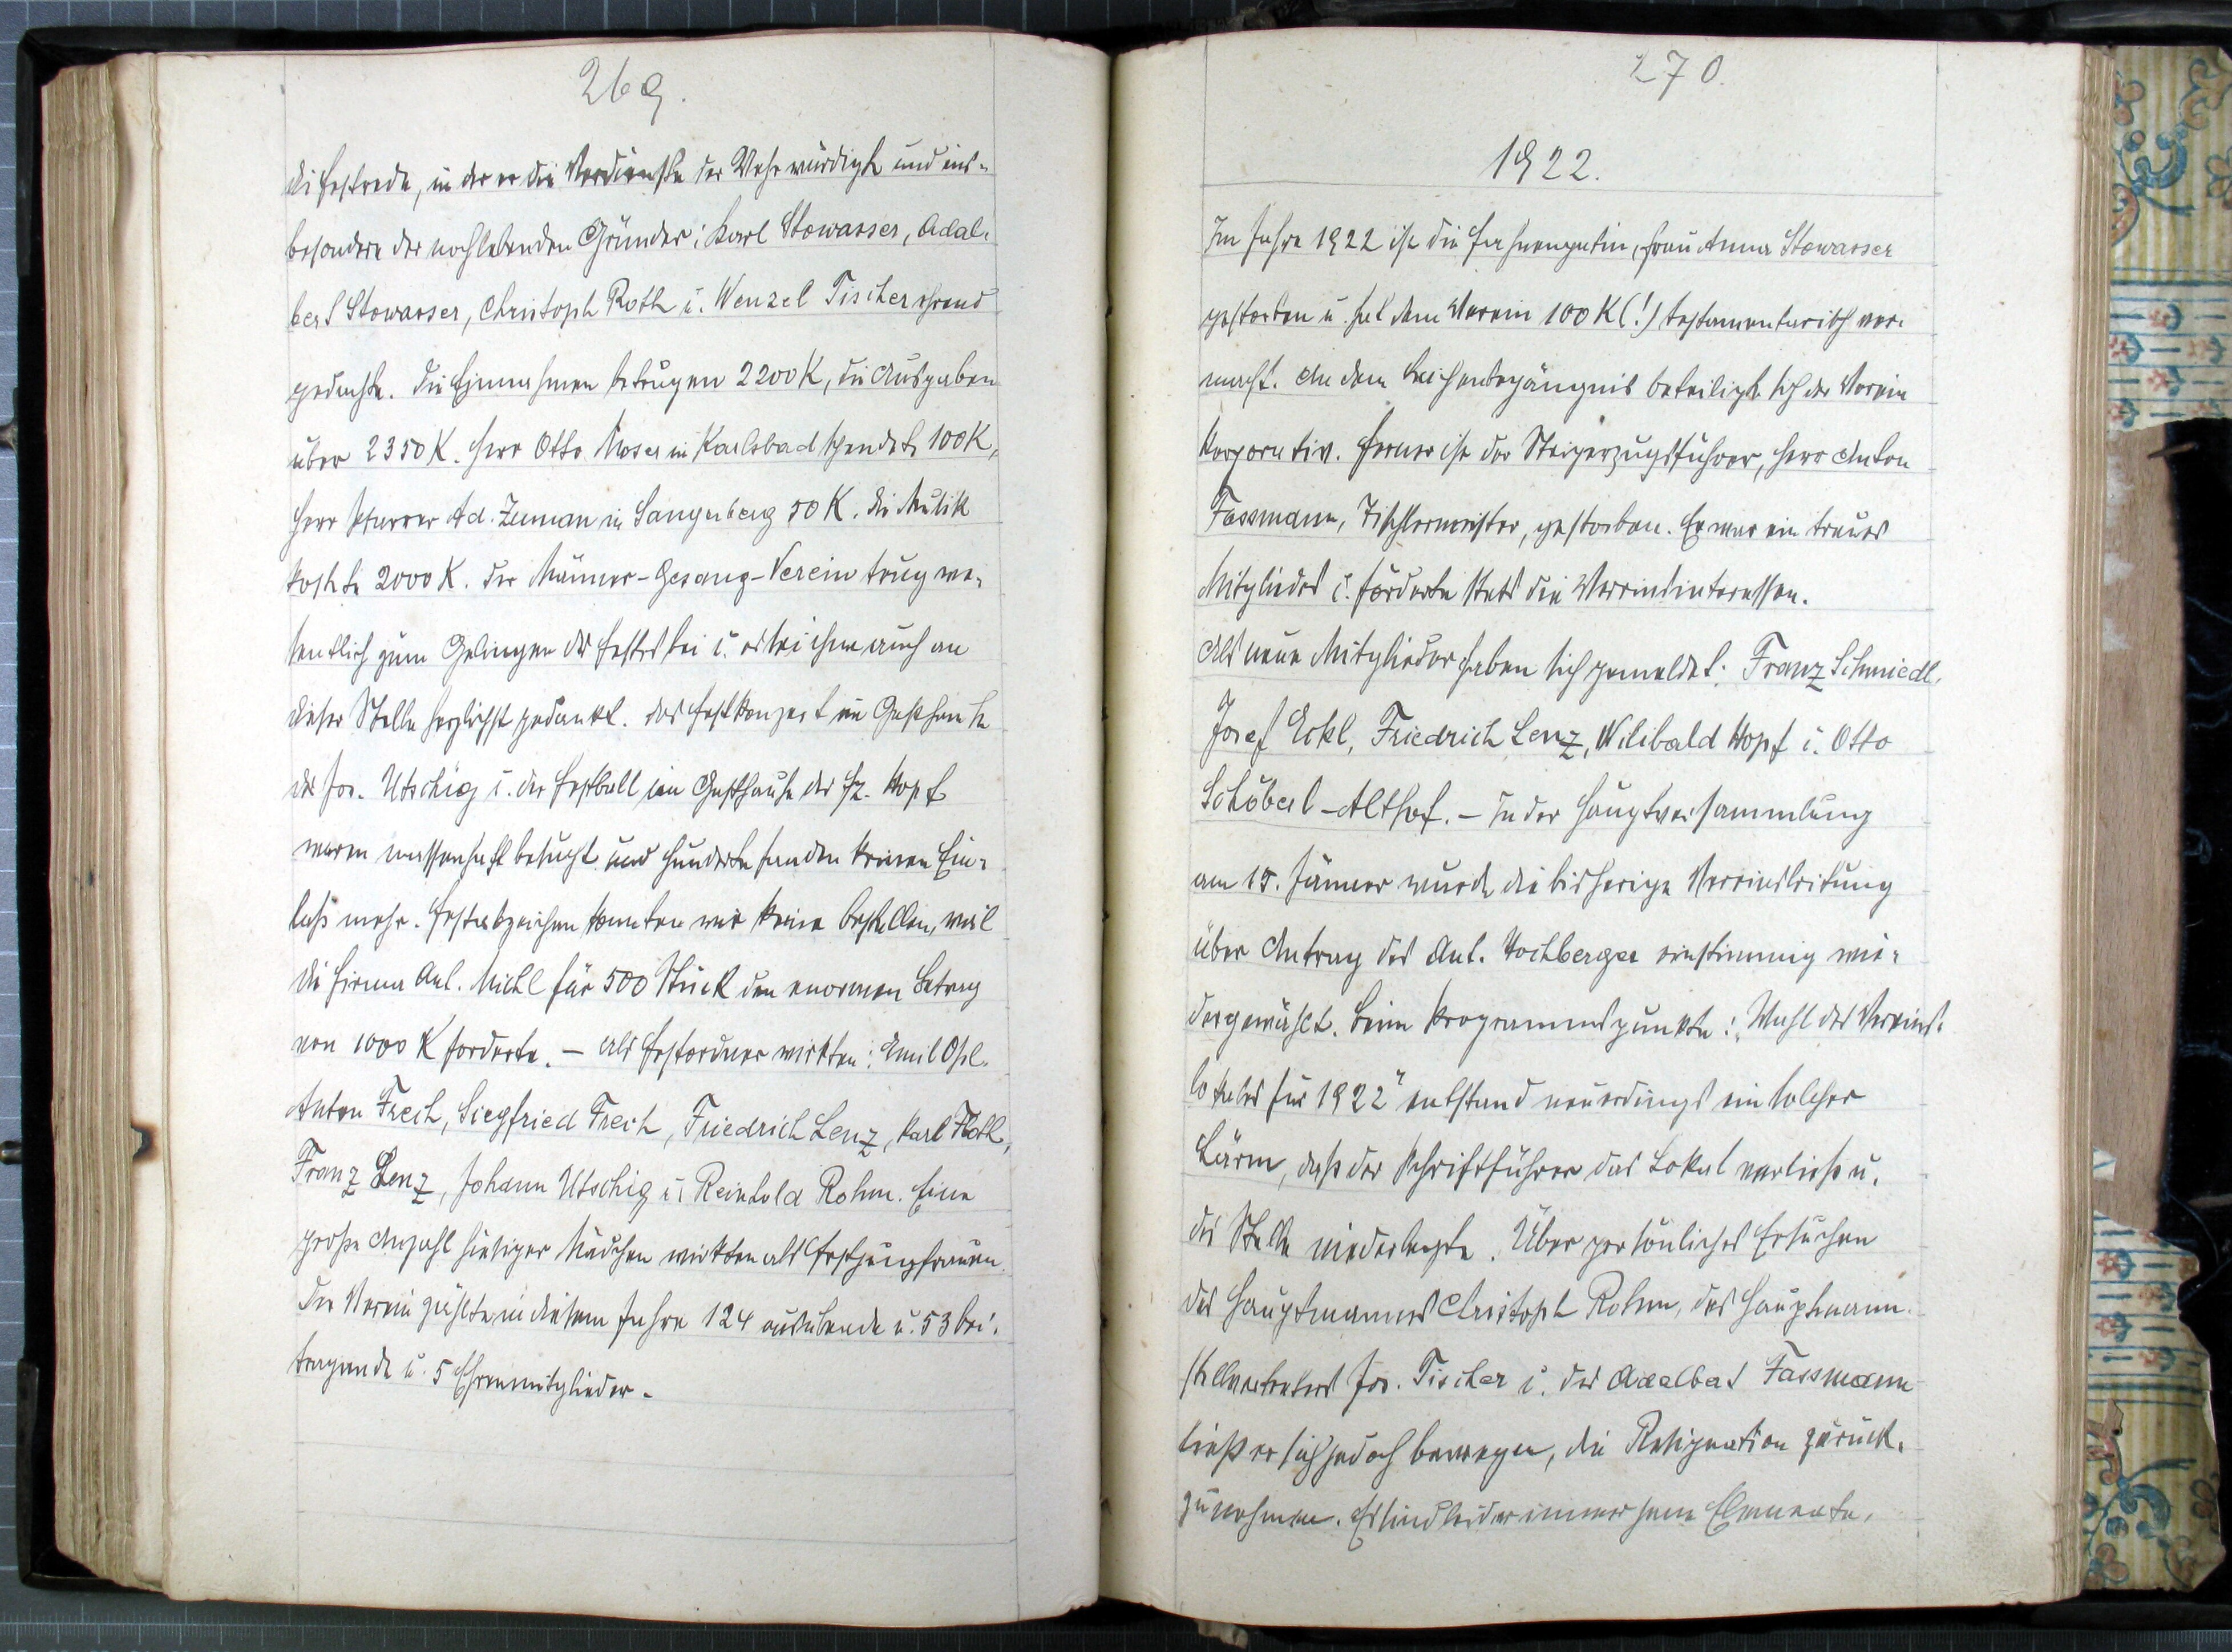 269.
die Festrede, in der er die Verdienste der Wehr würdigte und ins-
besondere der nochlebenden Gründer: Karl Stowasser, Adal-
bert Stowasser, Christoph Roth u. Wenzel Tischer ehrend
gedachte. Die Einnahmen betrugen 2200 K, die Ausgaben
über 2350 K. Herr Otto Moser in Karlsbad spendete 100 K,
Herr Pfarrer Ad. Zeman in Sangerberg 50 K. Die Musik
kostete 2000 K. Der Männer-Gesang-Verein trug we-
sentlich zum Gelingen des Festes bei u. es sei ihm auch an
dieser Stelle herzlichst gedankt. Das Festkonzert im Gasthause
des Jos. Utschig u. der Festball im Gasthause des Fz. Hopf
waren massenhaft besucht und Hunderte fanden keinen Ein-
laß mehr. Festabzeichen konnten wir keine bestellen, weil
die Firma Ant. Michl für 500 Stück den enormen Betrag
von 1000 K forderte. – Als Festordner wirkten: Emil Ohl.
Anton Frech, Siegfried Frech, Friedrich Lenz, Karl Roth,
Franz Lenz, Johann Utschig u. Reinhold Rohm. Eine
große Anzahl hiesiger Mädchen wirkten als Festjungfrauen.
Der Verein zählte in diesem Jahre 124 ausübende u. 53 bei-
tragende u. 5 Ehrenmitglieder.
270.
1922.
Im Jahre 1922 ist die Fahnenpatin, Frau Anna Stowasser
gestorben u. hat dem Verein 100 K (!) testamentarisch ver-
macht. An dem Leichenbegängnis beteiligte sich der Verein
korporativ. Ferner ist der Steigerzugsführer, Herr Anton
Fassmann, Tischlermeister, gestorben. Er war ein treues
Mitglied u. förderte stets die Vereinsinteressen.
Als neue Mitglieder haben sich gemeldet: Franz Schmiedl,
Josef Eckl, Friedrich Lenz, Wilibald Hopf u. Otto
Schöberl-Althof. – In der Hauptversammlung
am 15. Jänner wurde die bisherige Vereinsleitung
über Antrag des Ant. Hochberger einstimmig wie-
dergewählt. Beim Programmspunkte: „Wahl des Vereins-
lokales für 1922" entstand neuerdings ein solcher
Lärm, daß der Schriftführer das Lokal verließ u.
die Stelle niederlegte. Über persönliches Ersuchen
des Hauptmannes Christoph Rohm, des Hauptmann-
stellvertreters Jos. Tischer u. des Adalbert Fassmann
ließ er sich jedoch bewegen, die Resignation zurück-
zunehmen. Es sind leider immer jene Elemente,